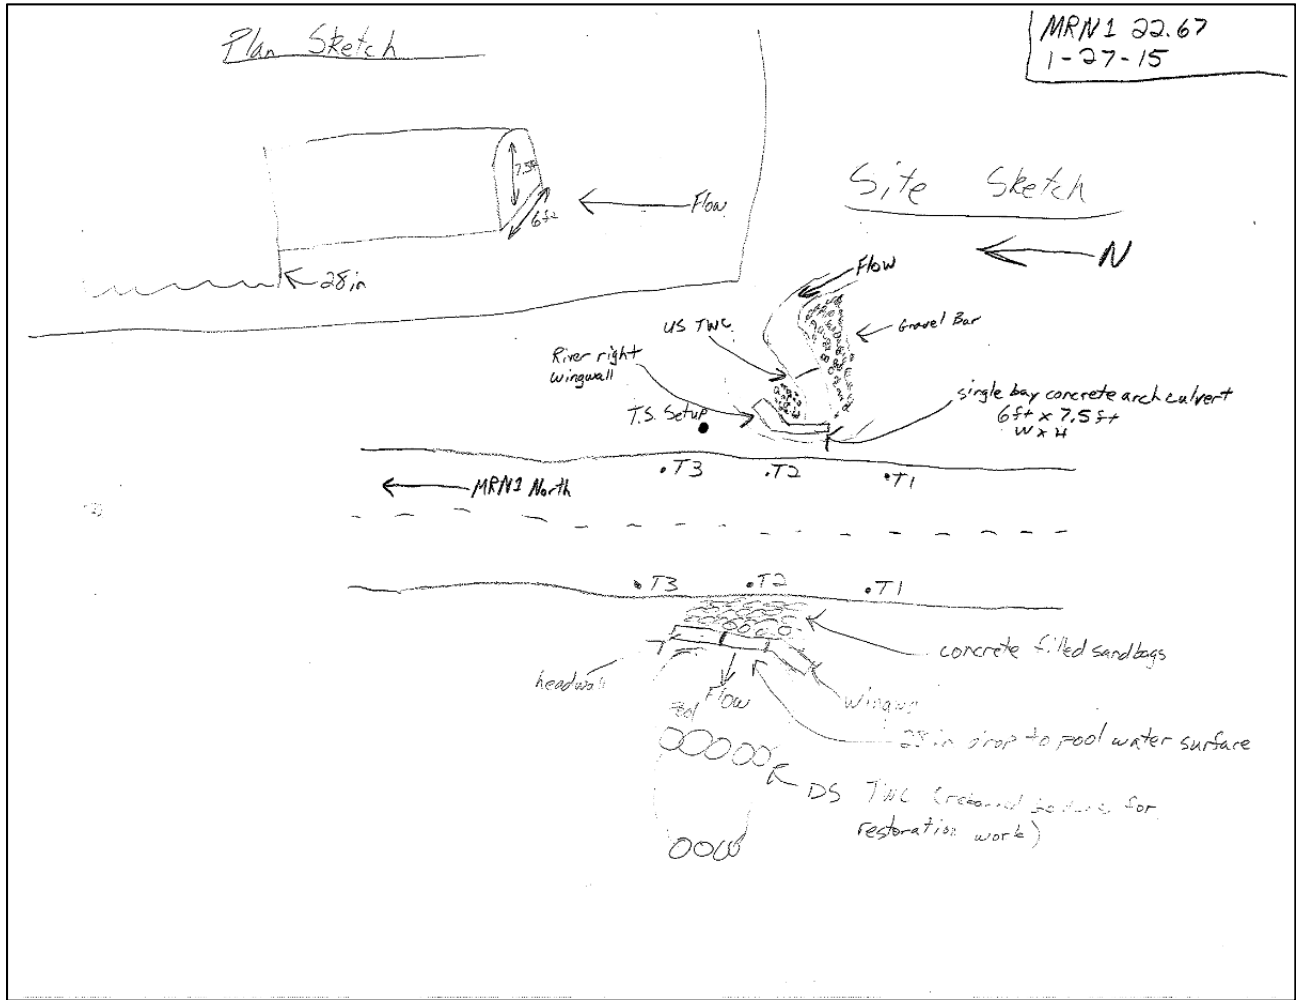 Plan Sketch
MRN1 22.67
1-27-15
7.5ft
6ft
Flow
28in
Site Sketch
N
Flow
US TWC
Gravel Bar
River right
wingwall
T.S. Setup
single bay concrete arch culvert
6ft x 7.5ft
W x H
.T3
.T2
.T1
MRN1 North
.T3
.T2
.T1
concrete filled sandbags
headwall
Flow
Pool
28in drop to pool water surface
DS TWC (
for
restoration work)